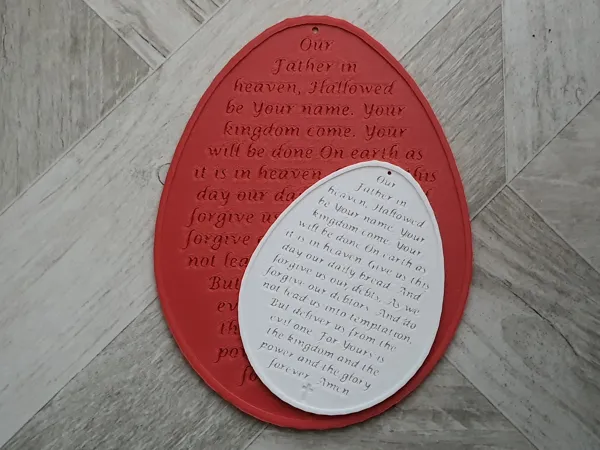 Our
Father in
heaven, Hallowed
be Your name. Your
kingdom come. Your
will be done On earth as
it is in heaven this
day our
forgive us
forgive
not
But
Our
Father in
heaven, Hallowed
be Your name. Your
kingdom come. Your
will be done On earth as
it is in heaven. Give us this
day our daily bread. And
forgive us our debts, As we
forgive our debtors. And do
not lead us into temptation,
But deliver us from the
evil one. For Yours is
the kingdom and the
power and the glory
forever. Amen